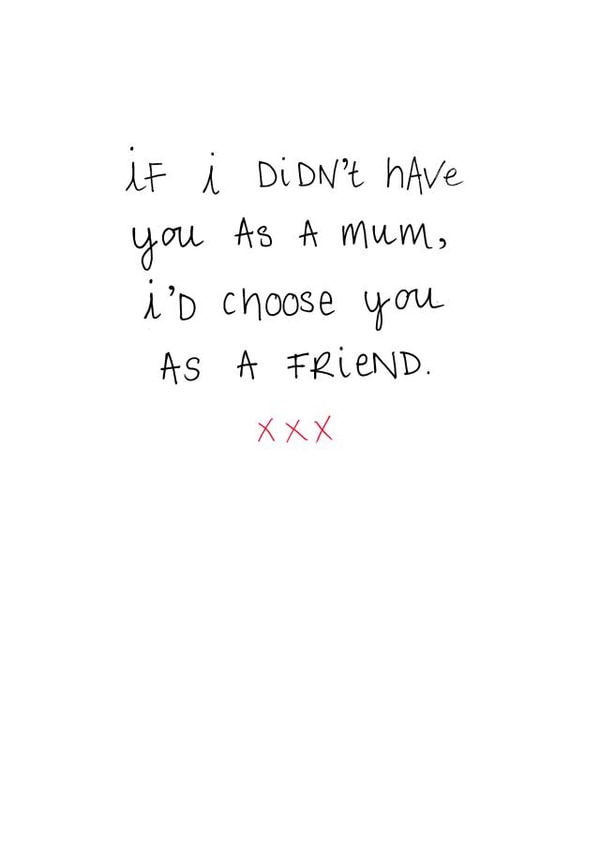 if i DiDN't hAve
you As A mum,
i'D choose you
As A FRieND.
xxx